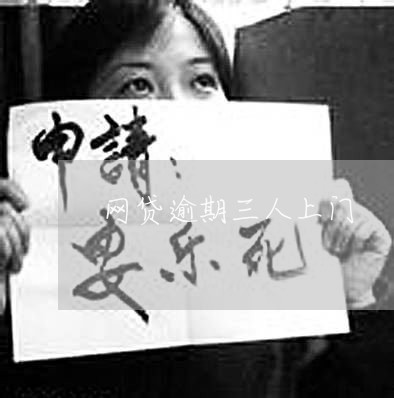 申請：
网贷逾期三人上门
安乐死